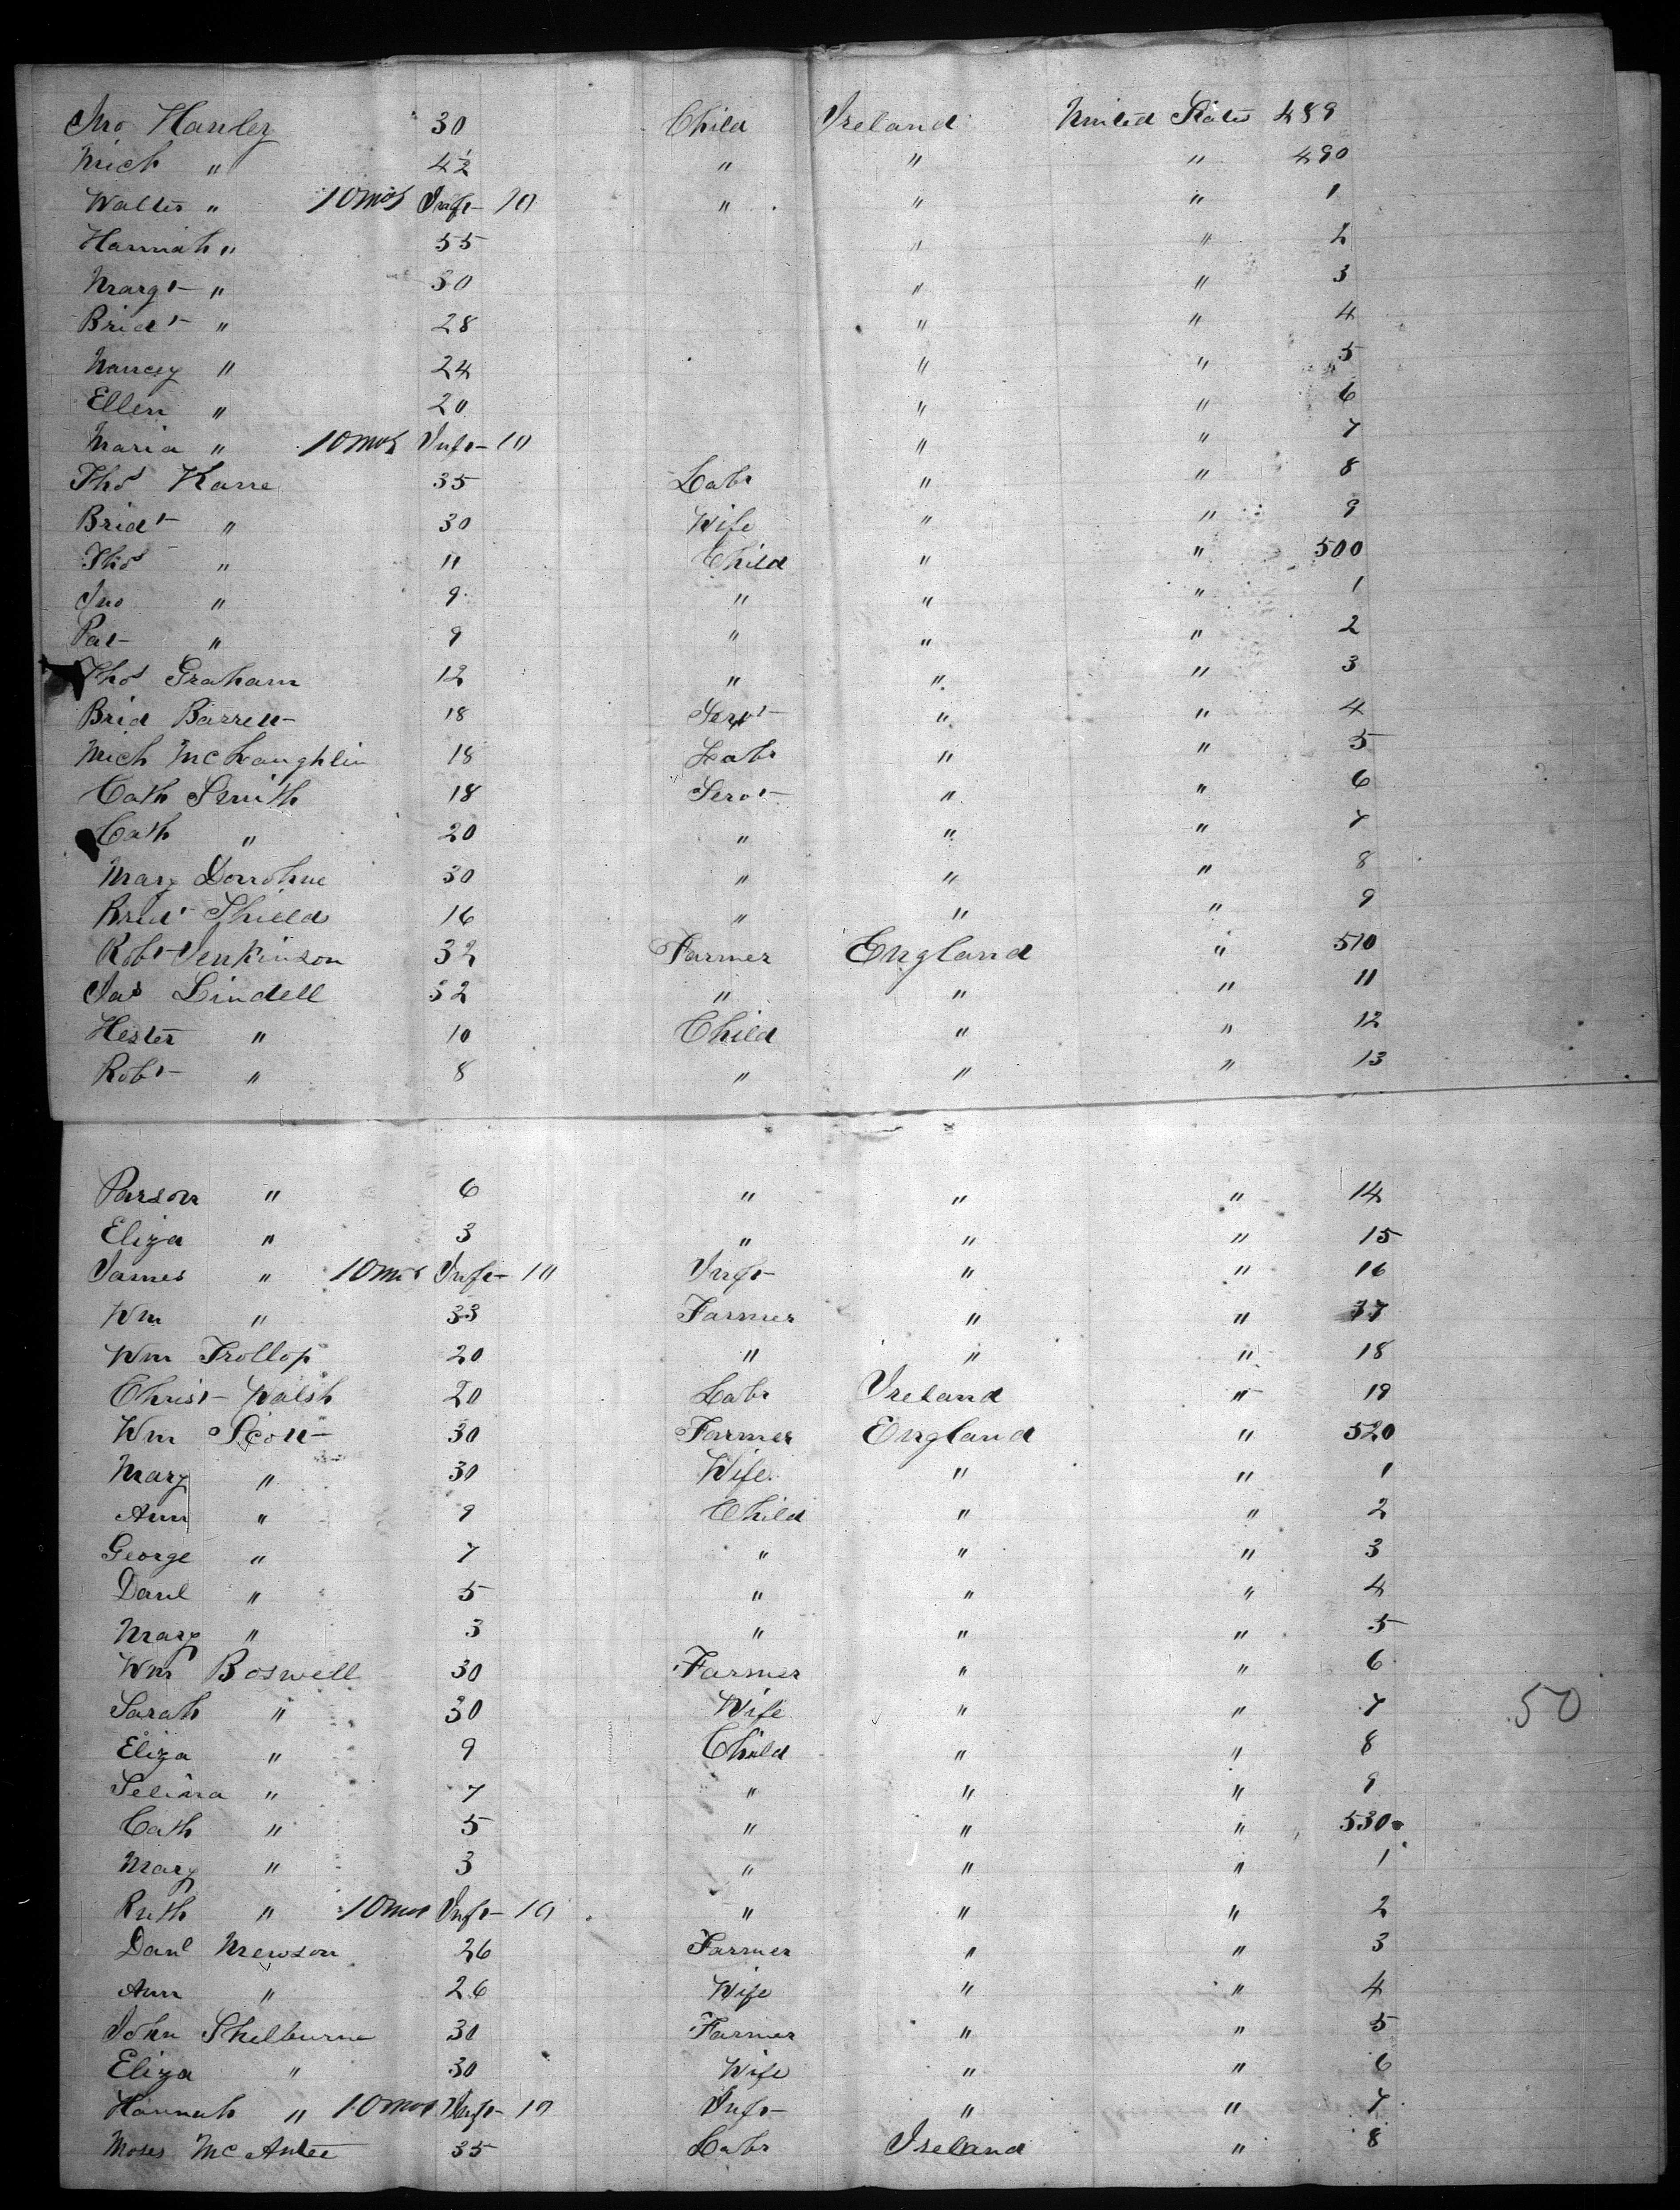 Jno Hanley 30 Child Ireland United States 489
Mich " 4½ " " " 490
Walter " 10 mos Inft 10 " " " 1
Hannah " 55 " " 2
Margt " 30 " " 3
Bridt " 28 " " 4
Nancy " 24 " " 5
Ellen " 20 " " 6
Maria " 10 mos Inft 10 " " 7
Thos Kane 35 Labr " " 8
Bridt " 30 Wife " " 9
Thos " 11 Child " " 500
Jno " 9 " " " 1
Pat " 9 " " " 2
Thos Graham 12 " " " 3
Brid Barrett 18 Servt " " 4
Mich McLaughlin 18 Labr " " 5
Cath Smith 18 Servt " " 6
Cath " 20 " " " 7
Mary Donohue 30 " " " 8
Bridt Shield 16 " " " 9
Robt Jenkinson 32 Farmer England " 510
Jas Lindell 32 " " " 11
Hester " 10 Child " " 12
Robt " 8 " " " 13
Parson " 6 " " " 14
Eliza " 3 " " " 15
James " 10 mos Inft 10 Inft " " 16
Wm " 33 Farmer " " 17
Wm Trollop 20 " " " 18
Christ Walsh 20 Labr Ireland " 19
Wm Scott 30 Farmer England " 520
Mary " 30 Wife " " 1
Ann " 9 Child " " 2
George " 7 " " " 3
Danl " 5 " " " 4
Mary " 3 " " " 5
Wm Boswell 30 Farmer " " 6
Sarah " 30 Wife " " 7 50
Eliza " 9 Child " " 8
Selina " 7 " " " 9
Cath " 5 " " " 530
Mary " 3 " " " 1
Ruth " 10 mos Inft 10 " " " 2
Danl Mewson 26 Farmer " " 3
Ann " 26 Wife " " 4
John Shelburne 30 Farmer " " 5
Eliza " 30 Wife " " 6
Hannah " 10 mos Inft 10 Inft " " 7
Moses McAntee 35 Labr Ireland " 8